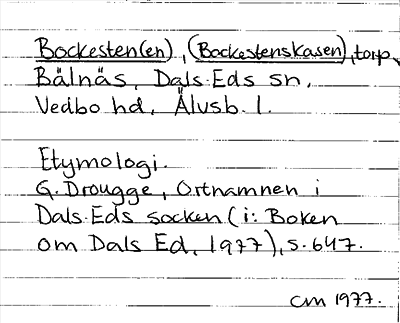 Bockesten(en), (Bockestenskasen), torp,
Bälnäs, Dals-Eds sn,
Vedbo hd, Älvsb. l.
Etymologi.
G. Drougge, Ortnamnen i
Dals-Eds socken (i: Boken
om Dals Ed, 1977), s. 647.
CM 1977.